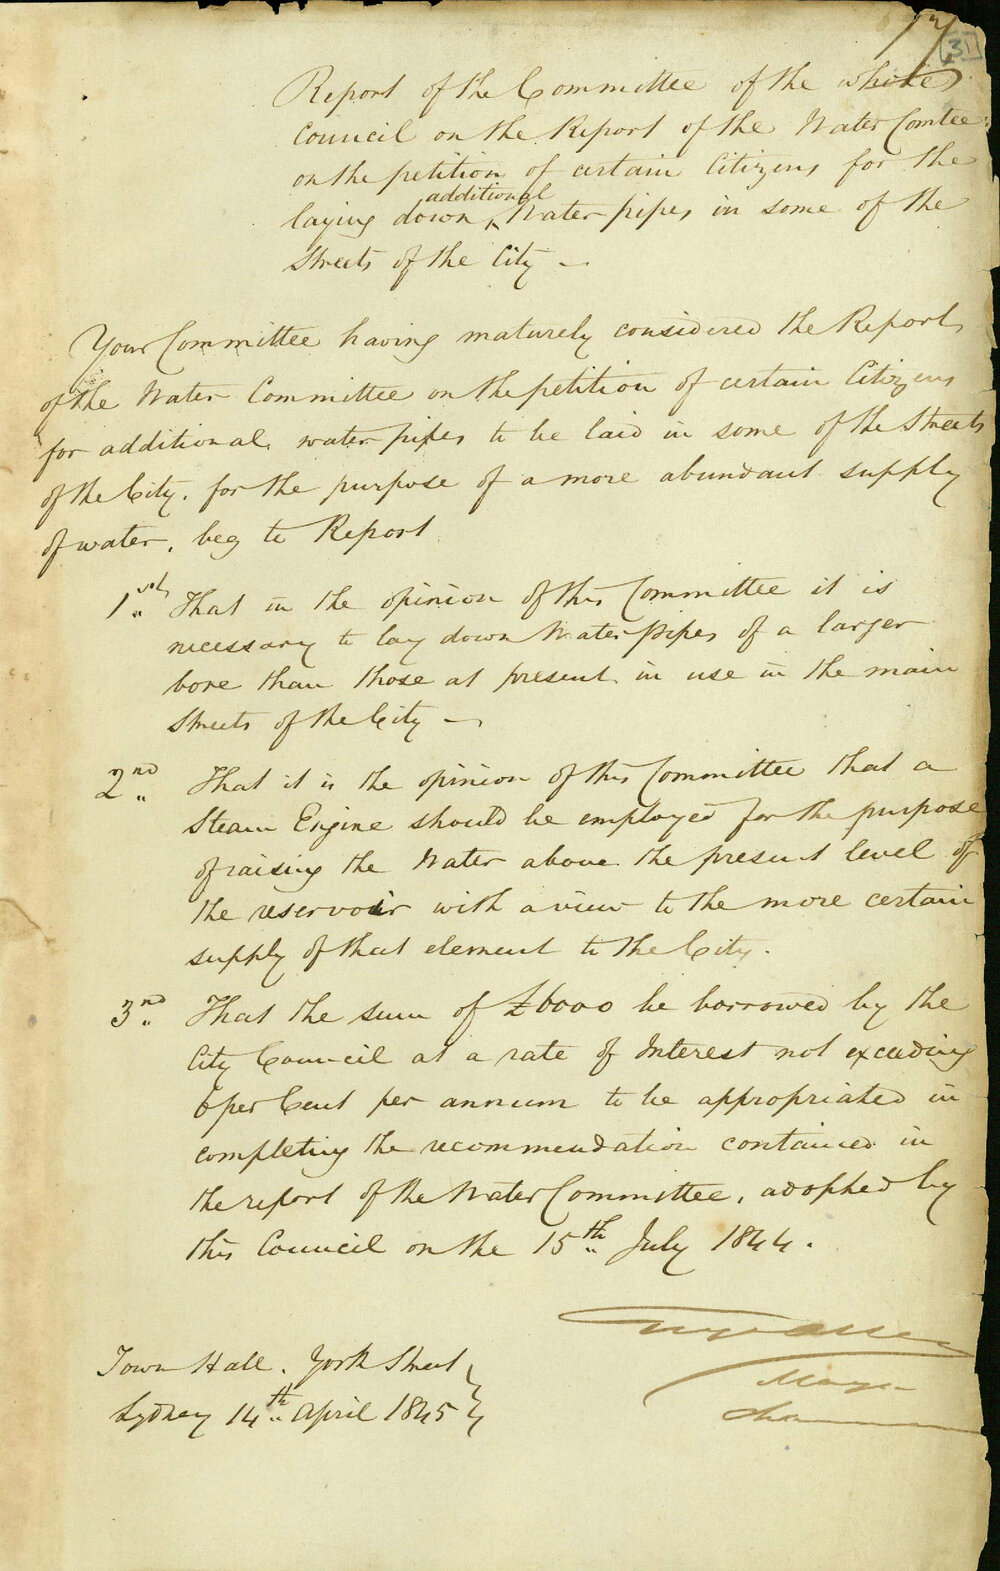 17
31
Report of the Committee of the whole
Council on the Report of the Water Comtee
on the petition of certain Citizens for the
laying down additional Water pipes in some of the
Streets of the City —
Your Committee having maturely considered the Report
of the Water Committee on the petition of certain Citizens
for additional water pipes to be laid in some of the Streets
of the City. for the purpose of a more abundant supply
of water, beg to Report
1st That in the opinion of this Committee it is
necessary to lay down Water pipes of a larger
bore than those at present in use in the main
Streets of the City —
2nd That it is the opinion of this Committee that a
Steam Engine should be employed for the purpose
of raising the Water above the present level of
the reservoir with a view to the more certain
supply of that element to the City.
3rd That the sum of £6000 be borrowed by the
City Council at a rate of Interest not exceeding
6 per Cent per annum to be appropriated in
completing the recommendation contained in
the report of the Water Committee, adopted by
this Council on the 15th July 1844.
Town Hall. York Street
Sydney 14th April 1845
Mayor